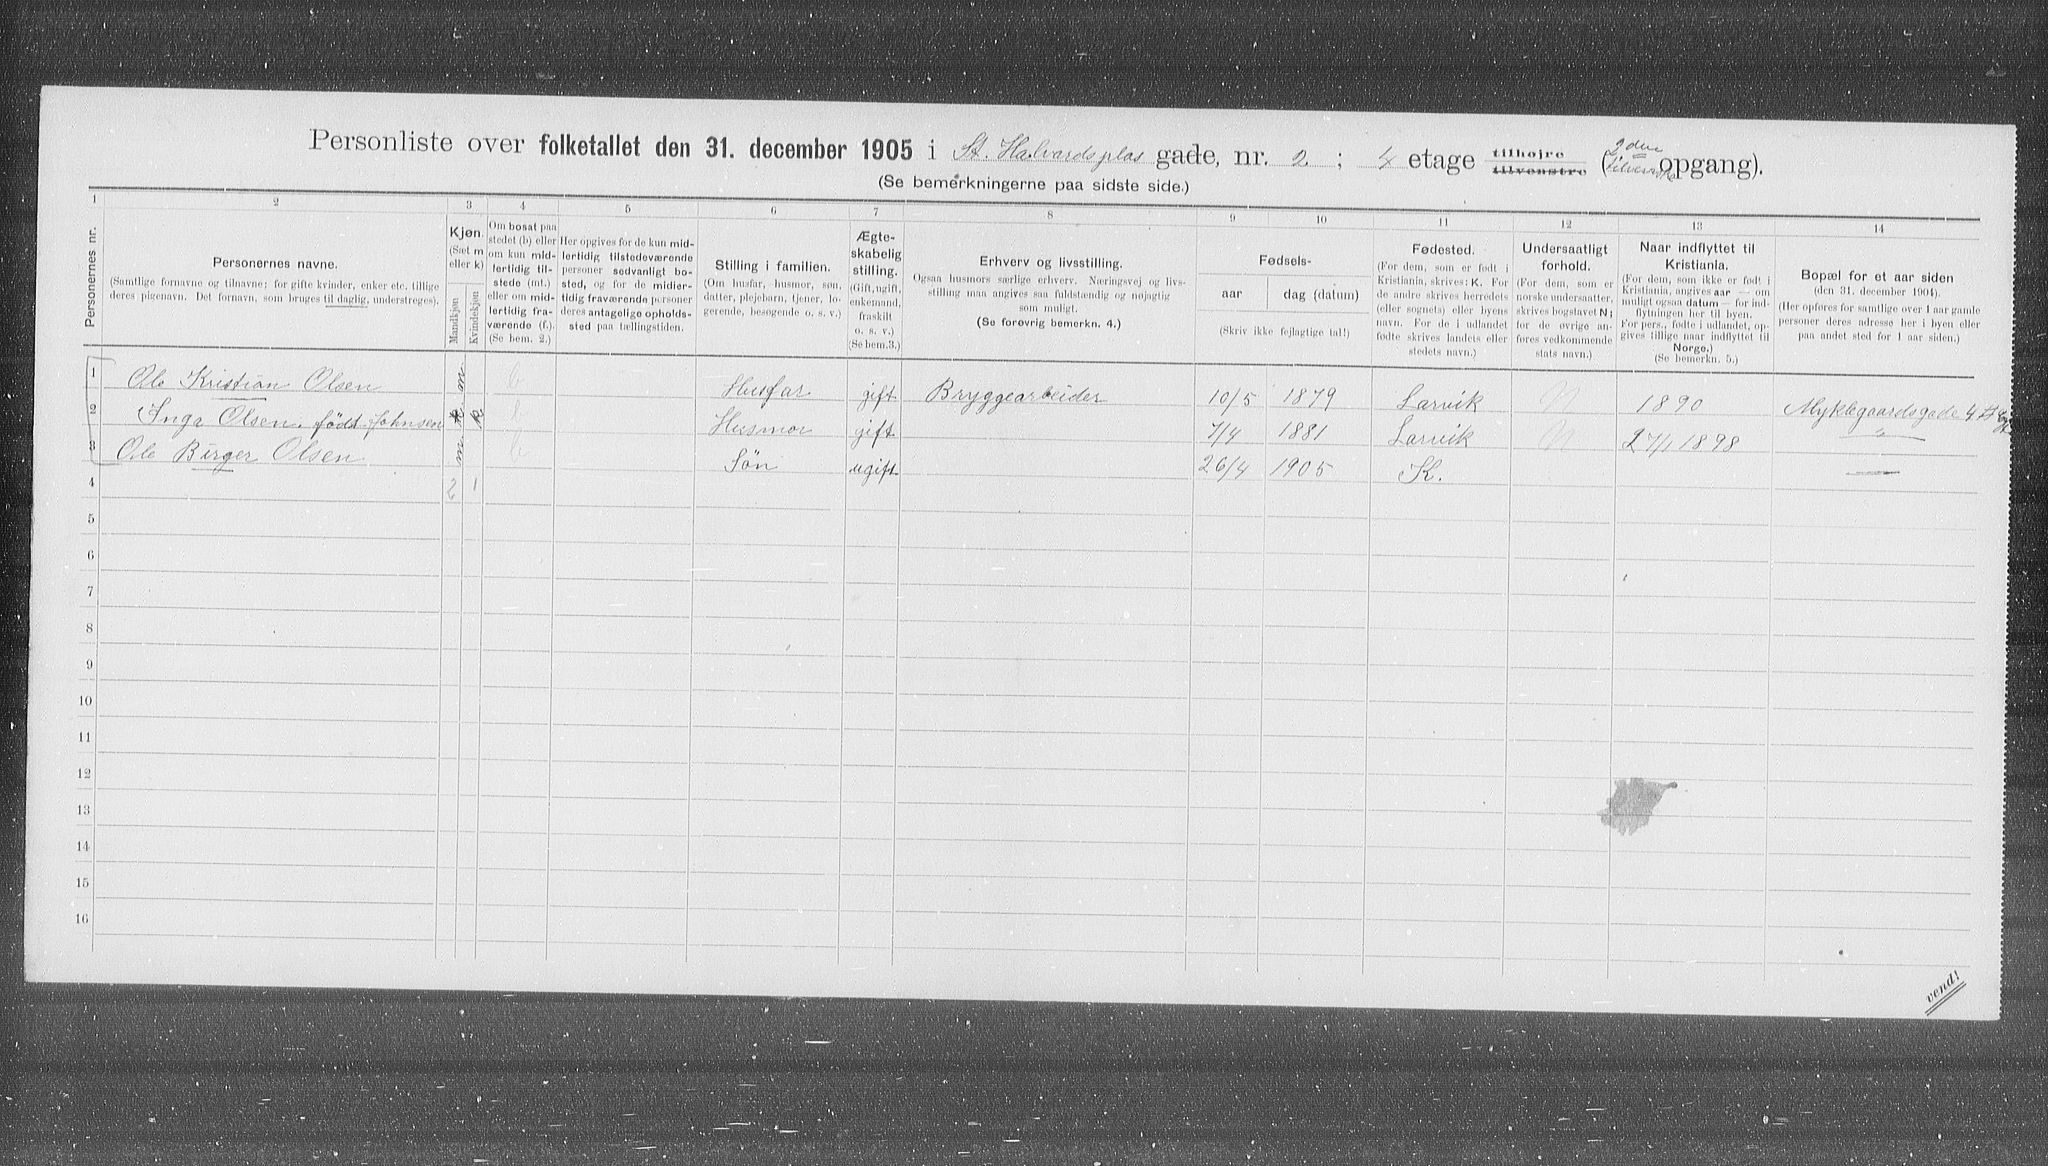 Personliste over folketallet den 31. december 1905 i St. Halvardsplas gade, nr. 2 ; 4 etage tilhøjre tilvenstre (2den tilvenstre opgang).
(Se bemerkningerne paa sidste side.)
1 2 3 4 5 6 7 8 9 10 11 12 13 14
Personernes nr.
Personernes navne.
(Samtlige fornavne og tilnavne; for gifte kvinder, enker etc. tillige
deres pigenavn. Det fornavn, som bruges til daglig, understreges).
Kjøn.
(Sæt m
eller k)
Mandkjøn
Kvindekjøn
Om bosat paa
stedet (b) eller
om kun mid-
lertidig til-
stede (mt.)
eller om mid-
lertidig fra-
værende (f.).
(Se bem. 2.)
Her opgives for de kun mid-
lertidig tilstedeværende
personer sedvanligt bo-
sted, og for de midler-
tidig fraværende personer
deres antagelige opholds-
sted paa tællingstiden.
Stilling i familien.
(Om husfar, husmor, søn,
datter, plejebarn, tjener, lo-
gerende, besøgende o. s. v.)
Ægte-
skabelig
stilling.
(Gift, ugift,
enkemand,
fraskilt
o. s. v.)
(Se bem.3.)
Erhverv og livsstilling.
Ogsaa husmors særlige erhverv. Næringsvej og livs-
stilling maa angives saa fuldstændig og nøjagtig
som muligt.
(Se forøvrig bemerkn. 4.)
Fødsels-
aar
dag (datum)
(Skriv ikke fejlagtige tal!)
Fødested.
(For dem, som er født i
Kristiania, skrives: K. For
de andre skrives herredets
(eller sognets) eller byens
navn. For de i udlandet
fødte skrives landets eller
stedets navn.)
Undersaatligt
forhold.
(For dem, som er
norske undersaatter,
skrives bogstavet N;
for de øvrige an-
føres vedkommende
stats navn.)
Naar indflyttet til
Kristiania.
(For dem, som ikke er født i
Kristiania, angives aar — om
muligt ogsaa datum — for ind-
flytningen her til byen.
For pers., fødte i udlandet, op-
gives tillige naar indflyttet til
Norge.)
(Se bemerkn. 5.)
Bopæl for et aar siden
(den 31. december 1904).
(Her opføres for samtlige over 1 aar gamle
personer deres adresse her i byen eller
paa andet sted for 1 aar siden.)
1 Ole Kristian Olsen m b Husfar gift Bryggearbeider 10/5 1879 Larvik N 1890 Myklegaardsgade 4
2 Inga Olsen, født Johnsen k k b Husmor gift 7/4 1881 Larvik N 27/1 1898 —„—
3 Ole Birger Olsen m b Søn ugift 26/4 1905 K. —
4 2 1
5
6
7
8
9
10
11
12
13
14
15
16
vend!